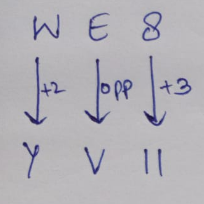 W E 8
+2 opp +3
Y V 11